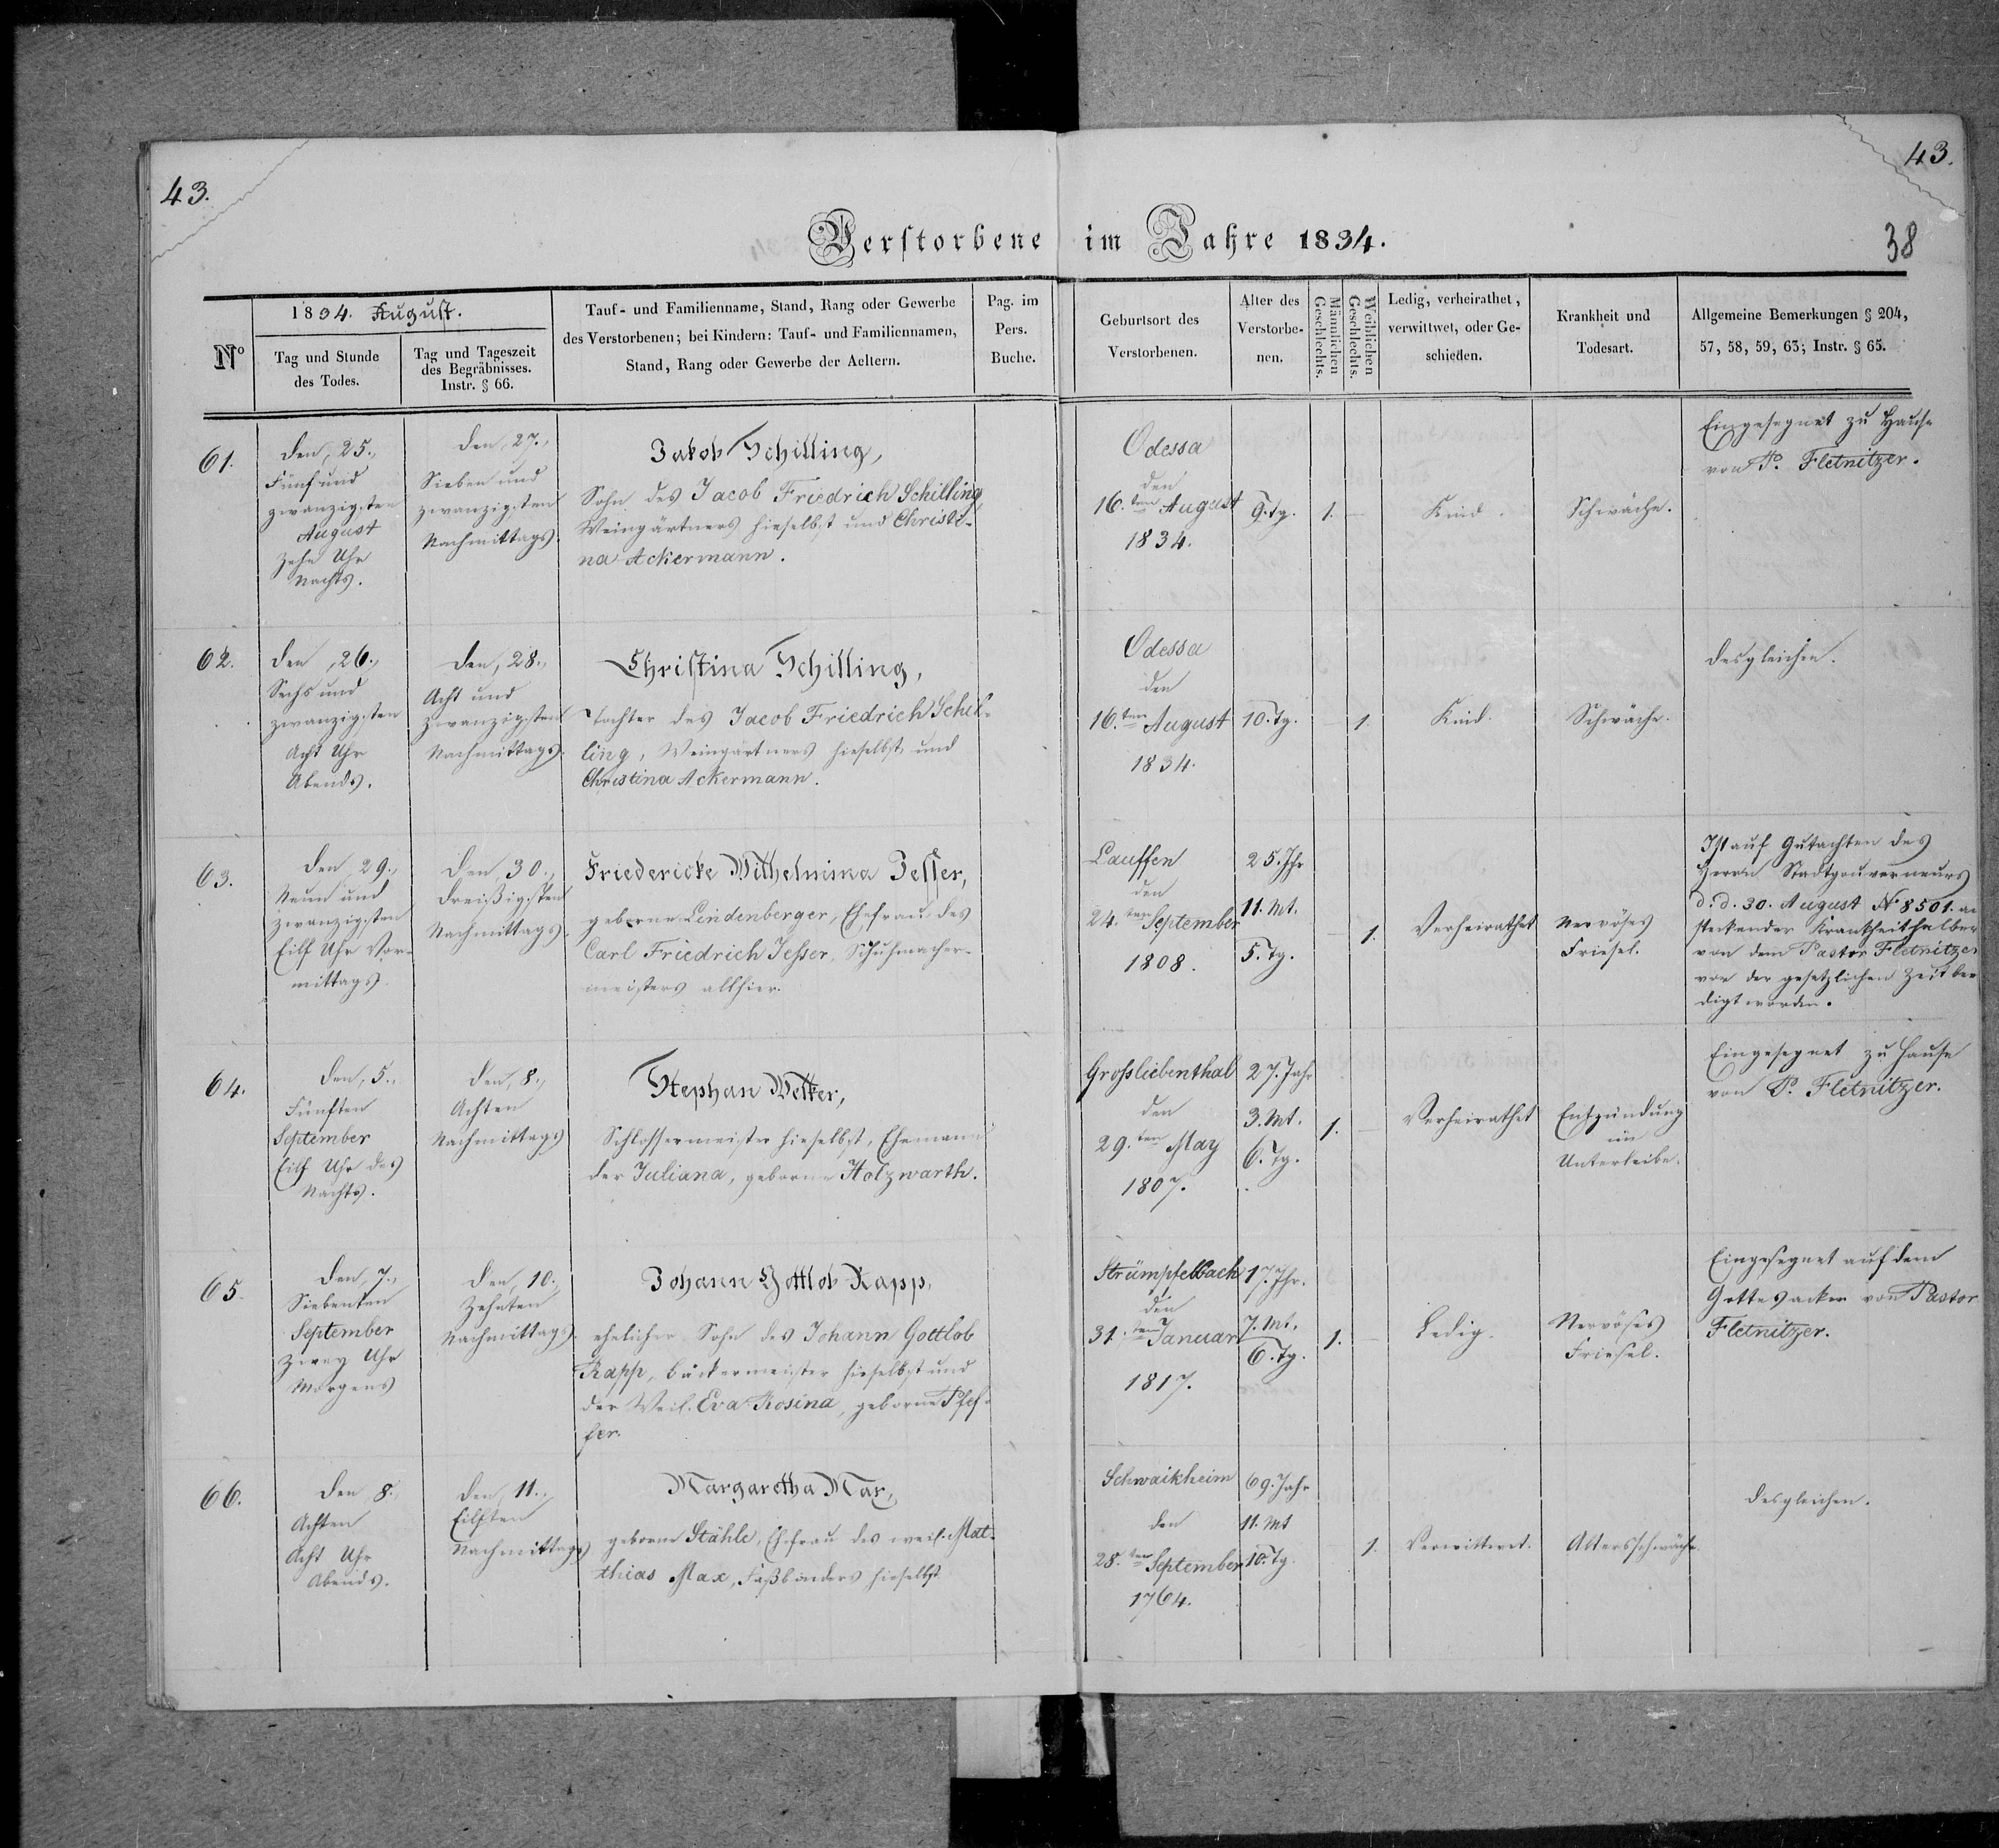 43.
43.
38
Verstorbene im Jahre 1834.
Nº
1834. August.
Tag und Stunde
des Todes.
Tag und Tageszeit
des Begräbnisses.
Instr. § 66.
Tauf- und Familienname, Stand, Rang oder Gewerbe
des Verstorbenen; bei Kindern: Tauf- und Familiennamen,
Stand, Rang oder Gewerbe der Aeltern.
Pag. im
Pers.
Buche.
Geburtsort des
Verstorbenen.
Alter des
Verstorbe-
nen.
Männlichen
Geschlechts.
Weiblichen
Geschlechts.
Ledig, verheirathet,
verwittwet, oder Ge-
schieden.
Krankheit und
Todesart.
Allgemeine Bemerkungen § 204,
57, 58, 59, 63; Instr. § 65.
61.
den, 25.,
Fünf und
zwanzigsten
August
Zehn Uhr
Nachts.
den, 27.,
Sieben und
zwanzigsten
Nachmittags.
Jakob Schilling,
Sohn des Jacob Friedrich Schilling
Weingärtners hieselbst und Christi-
na Ackermann.
Odessa
den
16.ten August
1834.
9. Tg.
1.
Kind.
Schwäche.
Eingesegnet zu Hause
von P. Fletnitzer.
62.
den, 26.,
Sechs und
zwanzigsten
Acht Uhr
Abends.
den, 28.,
Acht und
zwanzigsten
Nachmittags.
Christina Schilling,
Tochter des Jacob Friedrich Schil-
ling, Weingärtners hieselbst und
Christina Ackermann.
Odessa
den
16.ten August
1834.
10. Tg.
1.
Kind.
Schwäche.
desgleichen.
63.
den 29.,
Neun und
zwanzigsten
Eilf Uhr Vor-
mittags.
den, 30.,
Dreißigsten
Nachmittags.
Friedericke Wilhelmina Jesser,
geborne Lindenberger, Ehefrau des
Carl Friedrich Jesser, Schuhmacher-
meisters allhier.
Lauffen
den
24.ten September
1808.
25. Jhr
11. Mt.
5. Tg.
1.
Verheirathet
Nervöses
Friesel.
Ist auf Gutachten des
Herrn Stadtgouverneurs
d. d. 30. August N 8501. an
steckender Krankheit halber
von dem Pastor Fletnitzer
vor der gesetzlichen Zeit beer
digt worden.
64.
den, 5.,
Fünften
September
Eilf Uhr des
Nachts.
den, 8.,
Achten
Nachmittags
Stephan Welker,
Schlossermeister hieselbst, Ehemann
der Juliana, geborne Holzwarth.
Grossliebenthal
den
29.ten May
1807.
27. Jahr
3. Mt.
6. Tg.
1.
Verheirathet
Entzündung
im
Unterleibe.
Eingesegnet zu Hause
von P. Fletnitzer.
65.
den, 7.,
Siebenten
September
Zwey Uhr
Morgens
den, 10.,
Zehnten
Nachmittags.
Johann Gottlob Rapp,
ehelicher Sohn des Johann Gottlob
Rapp, Bäckermeister hieselbst und
der Weil. Eva Rosina, geborne Pfef-
fer.
Strümpfelbach
den
31.ten Januar
1817.
17. Jhr.
7. Mt.
6. Tg.
1.
Ledig.
Nervöses
Friesel.
Eingesegnet auf dem
Gottesacker von Pastor
Fletnitzer.
66.
den 8.,
Achten
Acht Uhr
Abends.
den, 11.,
Eilften
Nachmittags
Margaretha Max,
geborne Stähle, Ehefrau des weil. Mat-
thias Max, Faßbinders hieselbst.
Schwaikheim
den
28.ten September
1764.
69. Jahr
11. Mt
10. Tg.
1.
Verwittwet.
Altersschwäche.
desgleichen.